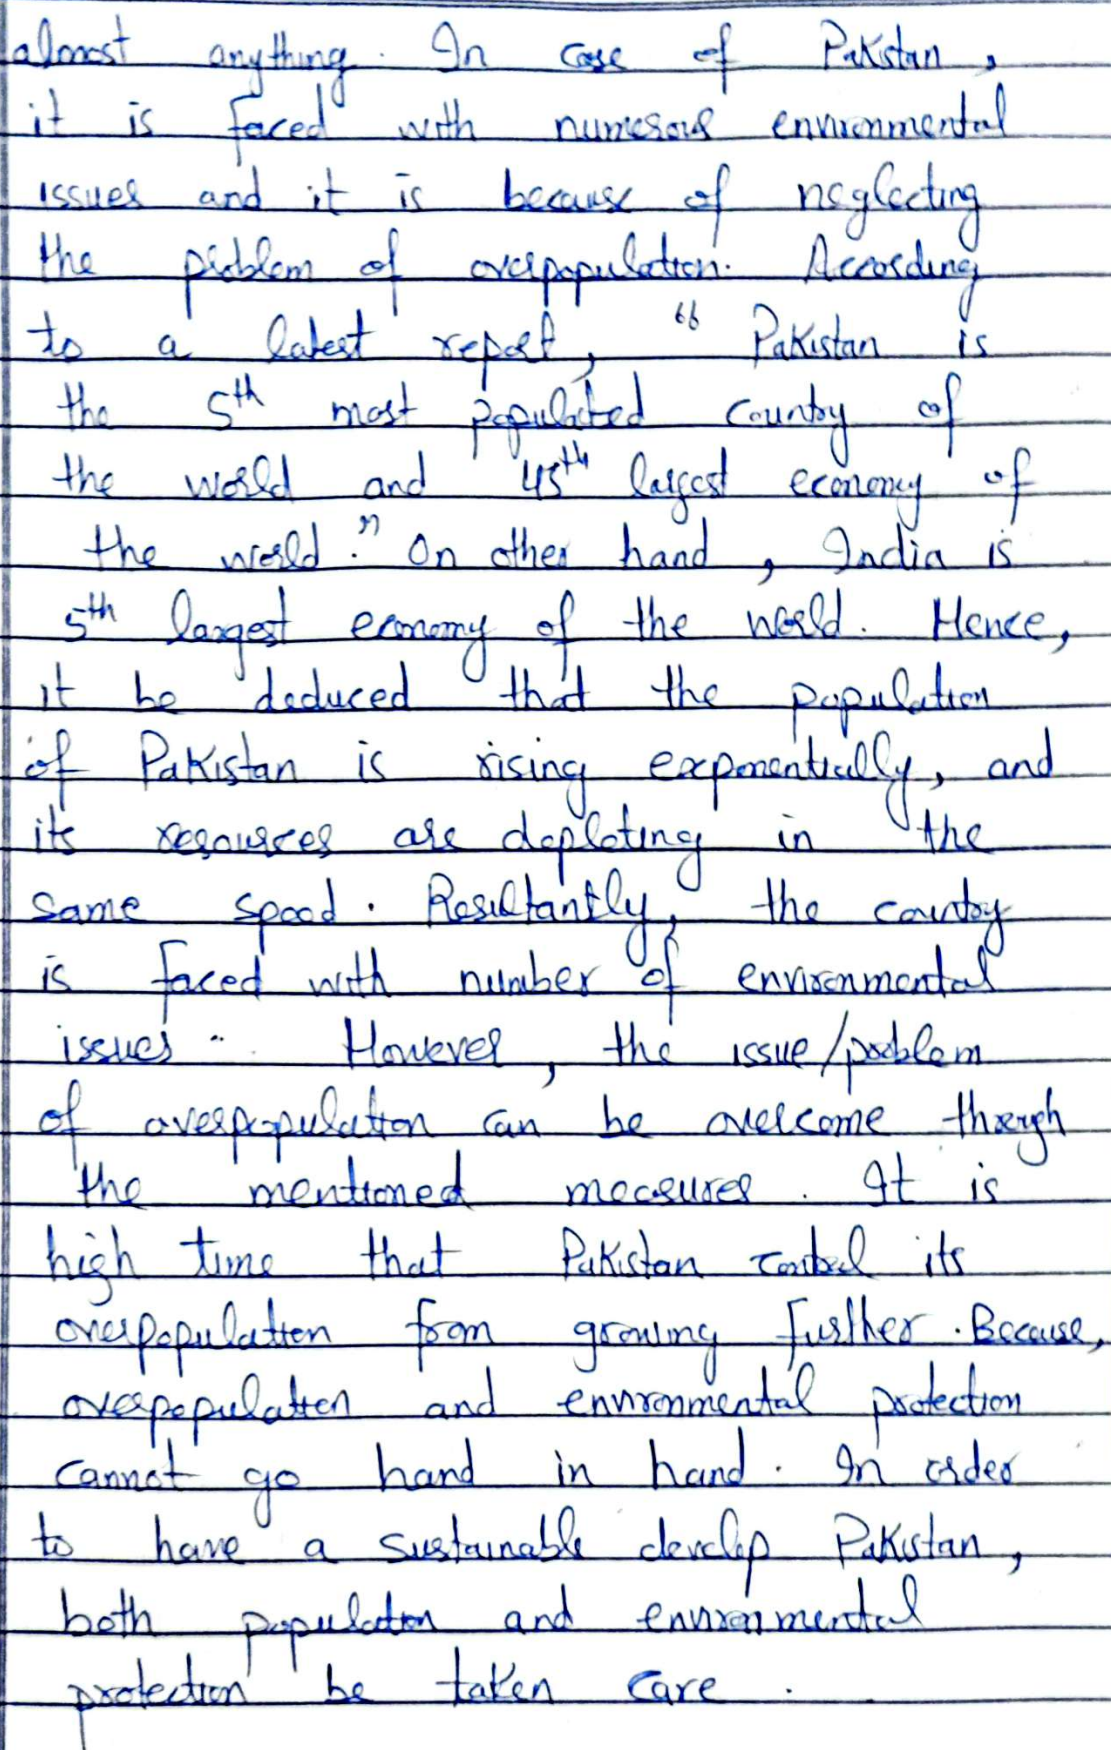 almost anything. In case of Pakistan,
it is faced with numerous environmental
issues and it is because of neglecting
the problem of overpopulation. According
to a latest report, " Pakistan is
the 5th most populated country of
the world and 45th largest economy of
the world." On other hand, India is
5th largest economy of the world. Hence,
it be deduced that the population
of Pakistan is rising exponentially, and
its resources are depleting in the
same speed. Resultantly, the country
is faced with number of environmental
issues. However, the issue/problem
of overpopulation can be overcome through
the mentioned measures. It is
high time that Pakistan control its
overpopulation from growing further. Because,
overpopulation and environmental protection
cannot go hand in hand. In order
to have a sustainable develop Pakistan,
both population and environmental
protection be taken care.